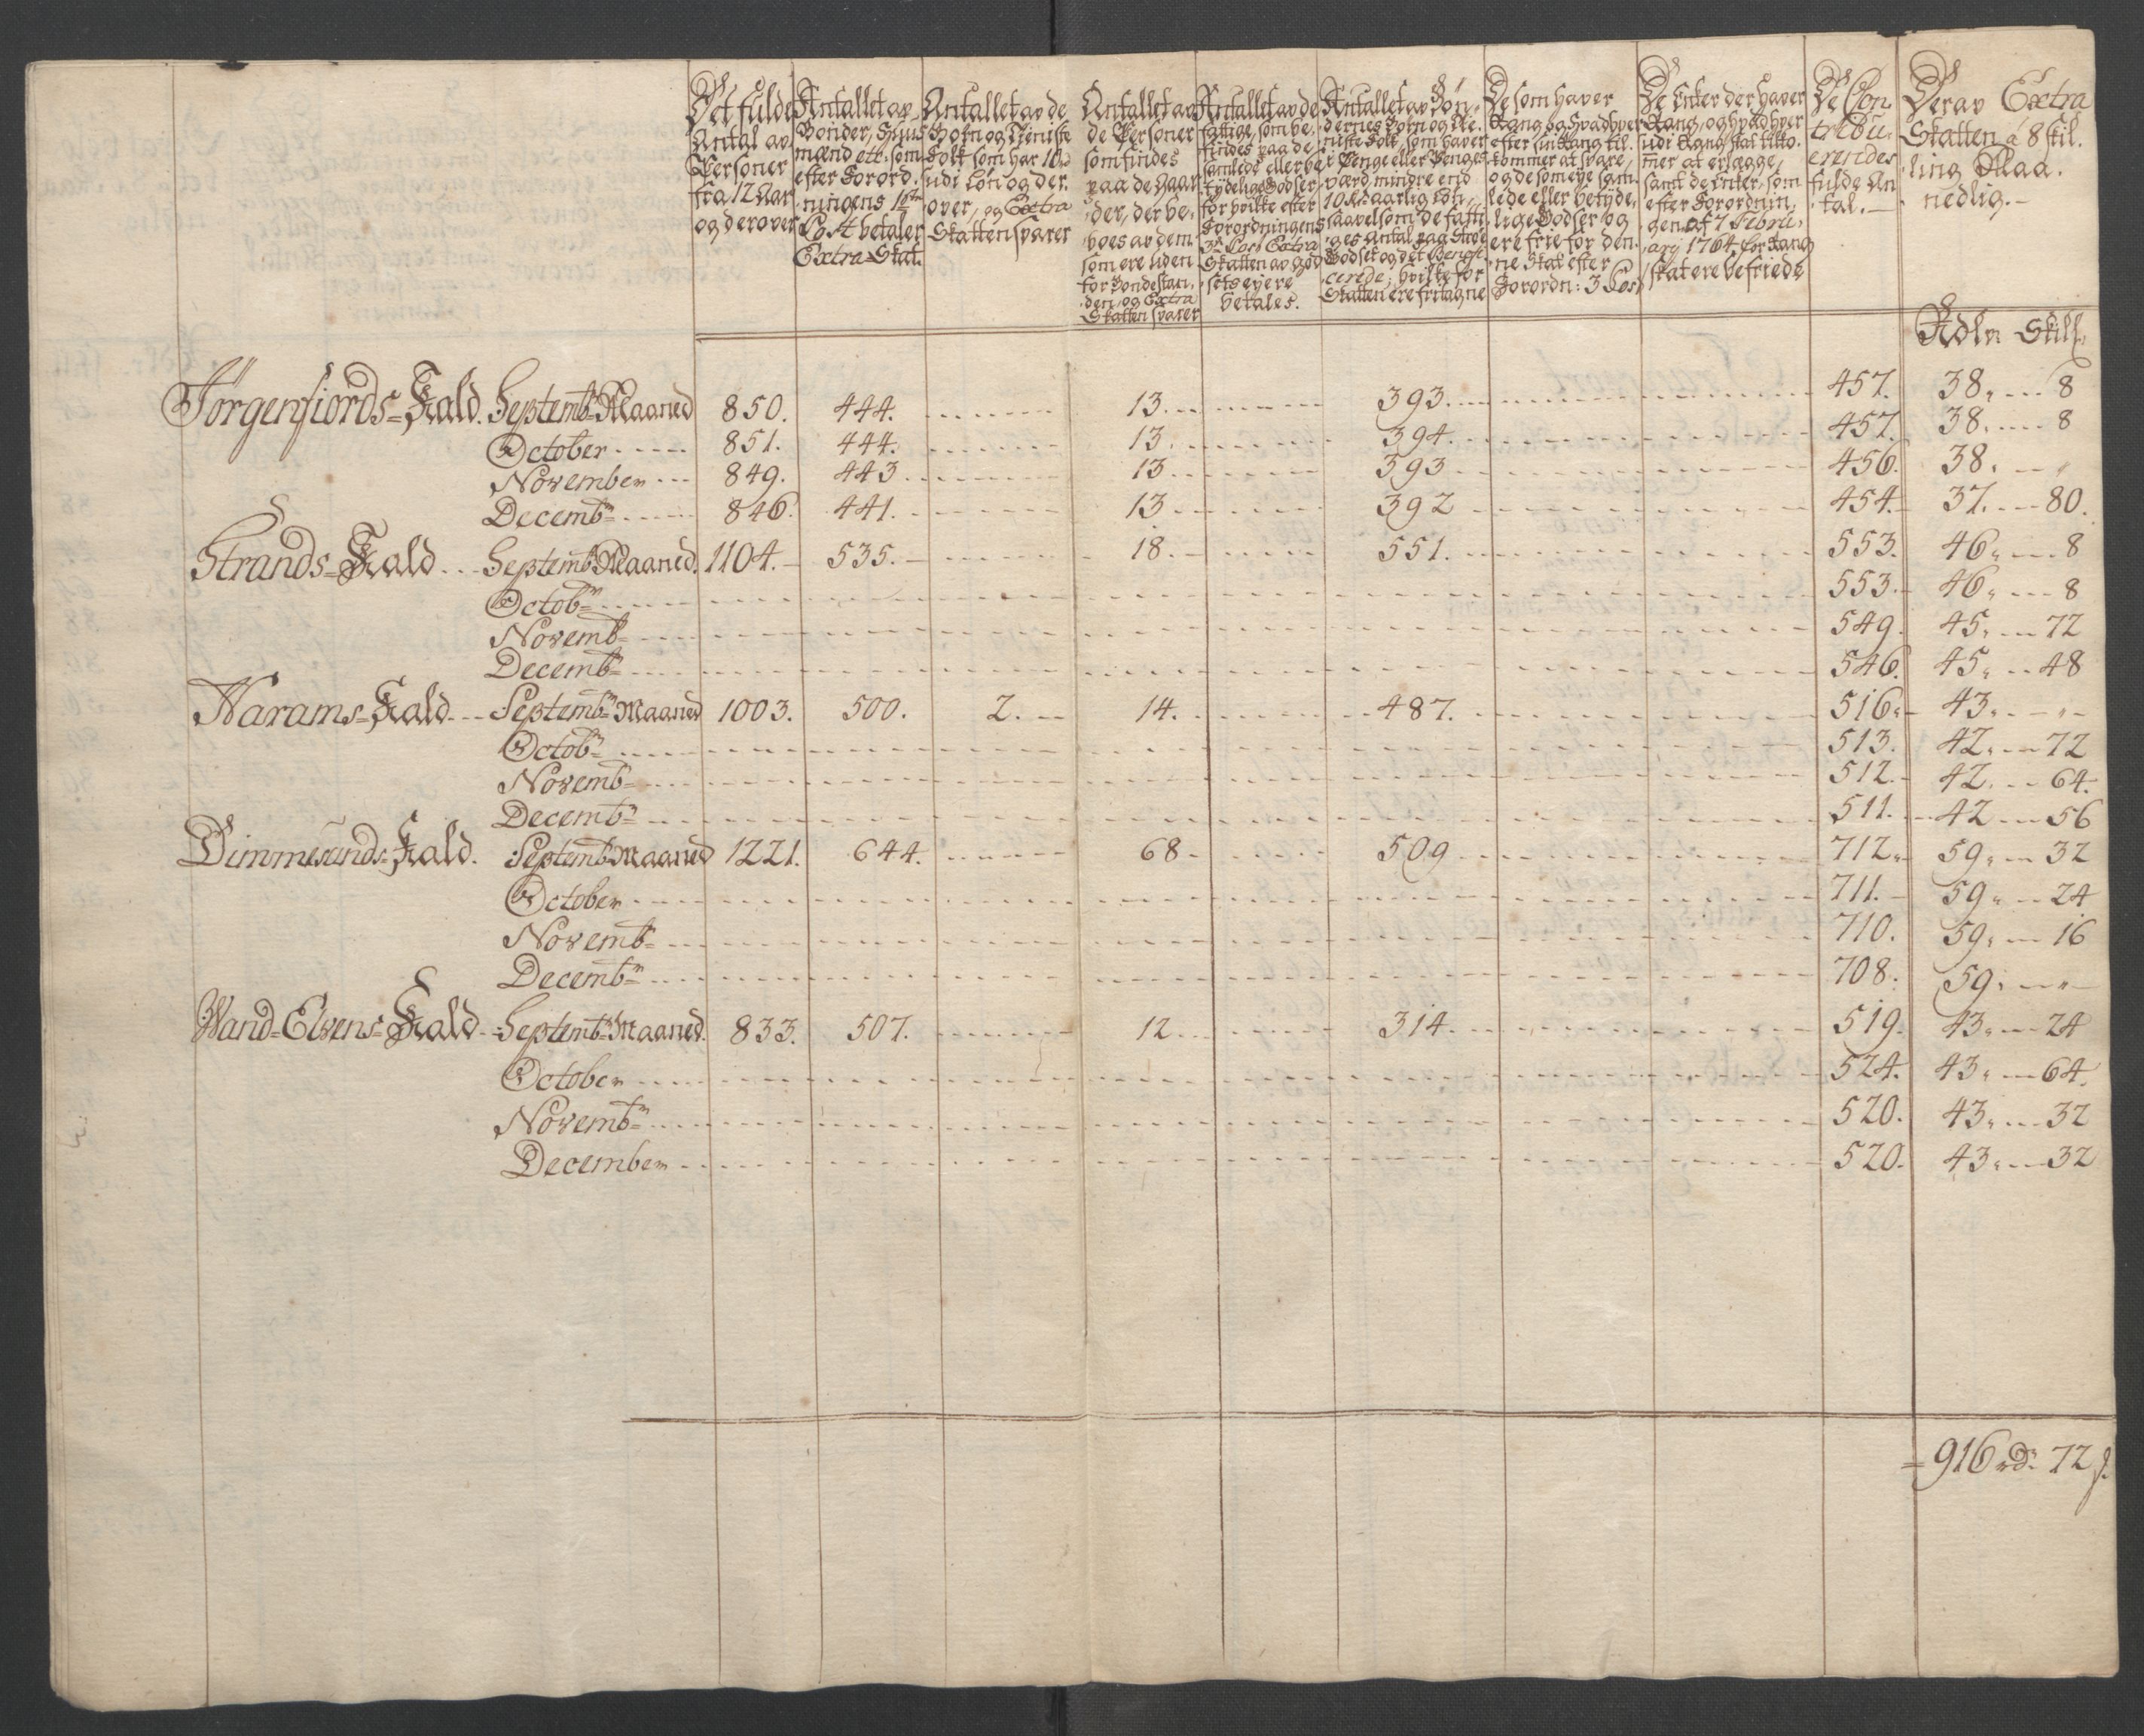 Det fulde
Antal av
Personer
fra 12 Aar
og derover
Antallet av
Bønder, Huus
mænd ett: som
efter Forord-
ningens 1ste
Post betaler
Extra-Skat.
Antallet av de
Børn og Tieniste
Folk som har 10
udi Løn og der-
over, og Extra
Skatten svarer
Antallet av
de Personer
som findes
paa de Gaar-
der, der be-
boes av dem
som ere uden
for Bondestan-
den, og Extra
Skatten svarer
Antallet av de
fattige, som be-
findes paa de
samlede eller be-
tydelige Godser
for hvilke efter
Forordningens
3die Post Extra
Skatten av God-
sets eyere
betales.
Antallet av Bøn-
dernes Børn og tie-
niste Folk, som haver
i Penge eller Penges
værd mindre end
10 aarlig Løn,
saavelsom de fatti-
ges Antal paa Strøe
Godset og det Benefi-
cerede, hvilke for
Skatten ere fritagne
De som haver
Rang og hvad hver
efter sin Rang til-
kommer at svare,
og de som eye sam-
lede eller betyde-
lige Godser og
ere frie for den-
ne Skat efter
Forordn: 3 Post
De Enker der haver
Rang, og hvad hver
udi Rang Skat tilko-
mer at erlægge,
samt de Enker, som
efter Forordnin-
gen af 7 Febru-
ary 1764 for Rang
skat ere befriede
De Con-
tribu-
erendes
fulde An-
tal.
Derav Extra
Skatten á 8 skil-
ling Maa-
nedlig.
Rdlr Skill.
Jörgenfiords-Skald. Septembr Maaned 850. 444. 13. 393. 457. 38. 8
October 851. 444. 13. 394. 457. 38. 8
November 849. 443. 13. 393 456. 38. "
Decembr 846. 441. 13 392 454. 37. 80.
Strands-Skald Septembr Maaned. 1104. 535. 18. 551. 553. 46. 8
Octobr 553. 46. 8
Novembr 549. 45. 72
Decembr 546. 45. 48
Harams-Skald Septembr Maaned 1003. 500. 2. 14. 487. 516. 43. "
Octobr 513. 42. 72
Novembr 512. 42. 64.
Decembr 511. 42 56
Dimmesunds-Skald. Septembr Maaned 1221. 644. 68 509 712. 59. 32
October 711. 59. 24
Novembr 710. 59. 16
Decembr 708. 59. "
Wand-Elvens-Skald Septembr Maaned. 833. 507. 12 314. 519. 43. 24
October 524. 43. 64.
Novembr 520. 43. 32
December 520. 43. 32
916 rdr 72 s.